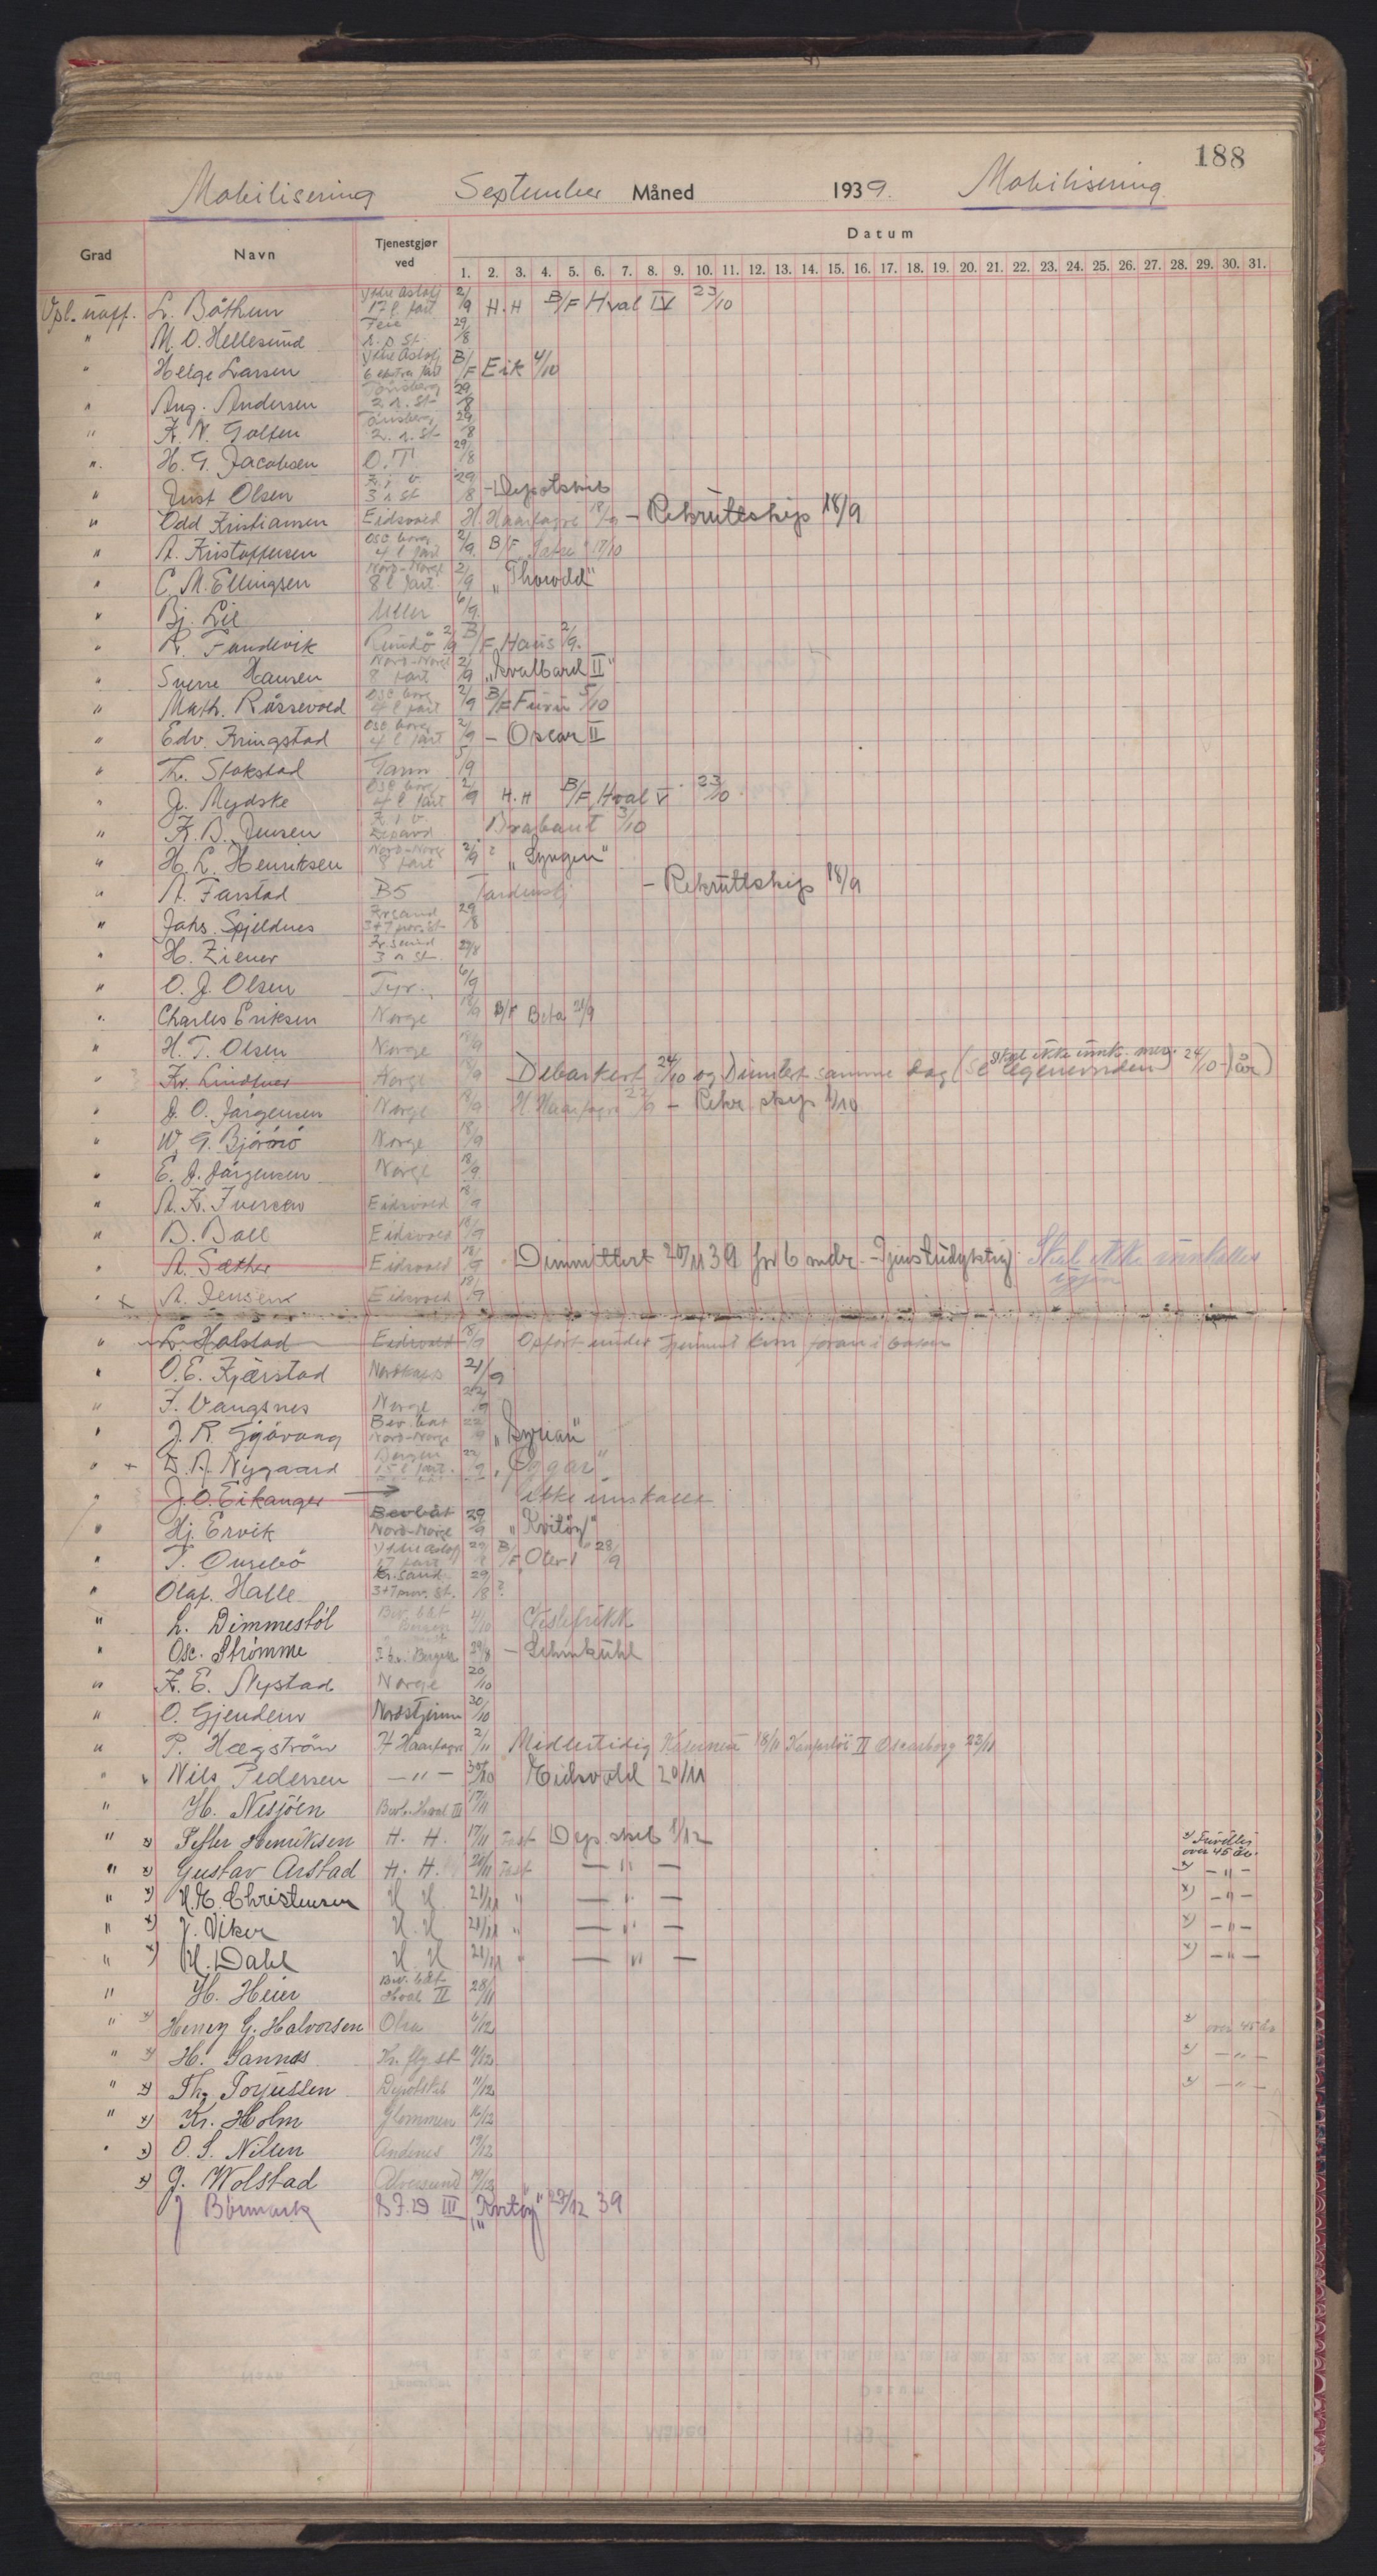 188
Mobilisering September Måned 1939. Mobilisering
Grad Navn Tjenestgjør ved Datum
1. 2. 3. 4. 5. 6. 7. 8. 9. 10. 11. 12. 13. 14. 15. 16. 17. 18. 19. 20. 21. 22. 23. 24. 25. 26. 27. 28. 29. 30. 31.
L. Båthun 2/9 H.H B/F Hval IV 23/10
" M. O. Hellesund 29/8
" Helge Larsen B/F Eik 4/10
" Aug. Andersen Tönsberg 2. r. St 29/8
" K. N. Golten Tönsberg 2. r. St 29/8
" H. G. Jacobsen O.T 29/8
" Just Olsen 3 r st 29/8 - Depotskib
" Odd Kristiansen Eidsvold H. Haarfagre 18/9 - Rekruteskip 18/9
" A. Kristoffersen Osc borg 4 l part 2/9. B/F
" C. M. Ellingsen Nord-Norge 8 l part 2/9 „Thorodd"
" Bj. Lie Uller 6/9.
" R. Tandevik Rundö 2/9 B/F Haus 2/9.
" Sverre Hansen Nord-Norge 8 part 2/9 „Svalbard II"
" Math. Råssevold Osc borg 4 l part 2/9 B/F Furu 5/10
" Edv. Kringstad Osc borg 4 l part 2/9 - Oscar II
" Th. Stokstad Garm 5/9
" J. Mydske Osc borg 4 l part 2/9 H.H B/F Hval V 23/10
" K. B. Jensen Brabant 3/10
" H. L. Henriksen Nord-Norge 8 part 2/9 ? „Lyngen"
" A. Farstad B5 - Rekruttskip 18/9
" Jahs. Spjeldnes Kr sand 3+7 prov. st 29/8
" H. Ziener 3 r St. 29/8
" O. J. Olsen Tyr. 6/9
" Charles Eriksen Norge 18/9 B/F Beta 21/9
" H. T. Olsen Norge 18/9
" Kr. Lindtner Norge 18/9 Debarkert 24/10 og Dimitert samme dag (Se legenemden) skal ikke innk. mer. 24/10 - 1 år)
" J. O. Jørgensen Norge 18/9 H Haarfagre 27/9 - Rekr skip 1/10
" W. G. Björnö Norge 18/9
" E. J. Jørgensen Norge 18/9
" A. K. Iversen Eidsvold 18/9
" B. Boll Eidsvold 18/9
" A. Sæther Eidsvold 18/9 Dimmittert 20/11 39 for 6 mdr. - Tjenstudyktig. Skal ikke innkalles igjen
" x A. Jensen Eidsvold 18/9
" L. Halstad Eidsvold 18/9 Opført under
" O. E. Kjærstad Nordkapp 21/9
" I. Vangsnes Norge
" J. R. Gjåvang Bev. båt Nord-Norge 22/9 „Syrian"
" + D. A. Nygaard Bergen 15 l part. 22/9
" J. O. Eikanger → ikke innkalle
" Hj. Ervik Bevbåt Nord-Norge 29/9 „Kvitöy"
" T. Ousebö 17 part B/F „Oter I" 28/9
" Olaf. Halle Kr. sand 3+7 prov. St. 29/8 ?
" L. Dimmestöl Bev. båt Bergen 4/10 Veslefrikk
" Osc. Strømme Bergen 29/8
" K. E. Nystad Norge 20/10
" O. Gjendem Nordstjernen 30/10
" P. Hægström H Haarfagre 2/11 Midlertidig 18/11 II Oscarborg 22/11
" Nils Pedersen — " — 30/10 Eidsvold 20/11
" H. Nesjöen Bevb. Hval III 17/11
" x) Peller Henriksen H. H. 17/11 Fast Dep. skib 1/12 x) Frivillig over 45 år.
" x) Gustav Årstad H. H. 20/11 Fast — " — x) — " —
" x) H. E. Christensen H H 21/11 " — " — x) — " —
" x) J. Viker H. H 21/11 " — " — x) — " —
" x) H. Dahl H. H 21/11 " — " — x) — " —
" H. Heier Bev. båt Hval II 28/11
" x) Henry G. Halvorsen Olra 6/12 x) over 45 år
" x) H. Sannæs Kr. flyst 9/12 x) — " —
" x) Th. Torjussen Depotskib 11/12 x) — " —
" x) Kr. Holm Glommen 16/12
" x) O. S. Nilsen Andenes 19/12
x) J. Wolstad Alversund 19/12
J Börmark S.F.D III „Kvitöy" 27/12 39